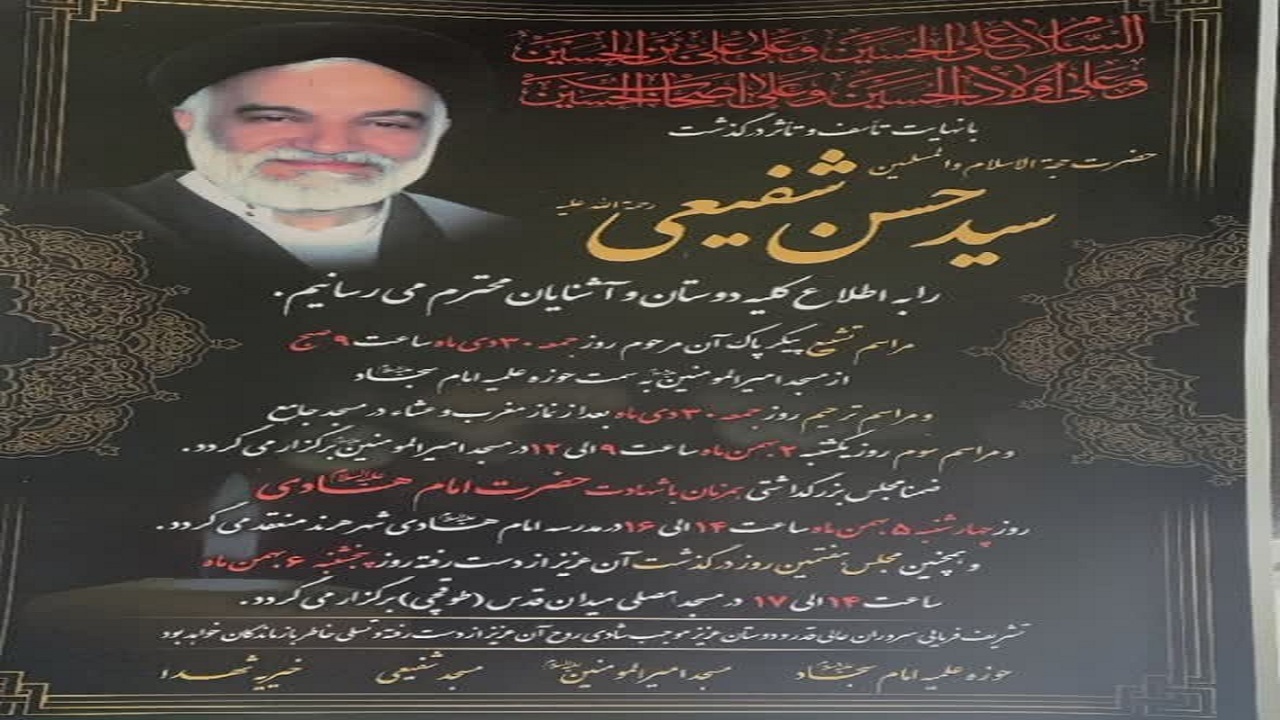 السلام علی الحسین وعلی علی بن الحسین
وعلی اولاد الحسین وعلی اصحاب الحسین
با نهایت تأسف و تأثر درگذشت
حضرت حجة الاسلام والمسلمین
سید حسن شفیعی رحمة الله علیه
را به اطلاع کلیه دوستان و آشنایان محترم می رسانیم.
مراسم تشییع پیکر پاک آن مرحوم روز جمعه ۳۰ دی ماه ساعت ۹ صبح
از مسجد امیرالمومنین به سمت حوزه علمیه امام سجاد
و مراسم ترحیم روز جمعه ۳۰ دی ماه بعد از نماز مغرب و عشاء در مسجد جامع
و مراسم سوم روز یکشنبه ۲ بهمن ماه ساعت ۹ الی ۱۲ در مسجد امیرالمومنین برگزار می گردد.
ضمنا مجلس بزرگداشتی همزمان با شهادت حضرت امام هادی علیه السلام
روز چهارشنبه ۵ بهمن ماه ساعت ۱۴ الی ۱۶ در مدرسه امام هادی شهر هرند منعقد می گردد.
و همچنین مجلس هفتمین روز درگذشت آن عزیز از دست رفته روز پنجشنبه ۶ بهمن ماه
ساعت ۱۴ الی ۱۷ در مسجد مصلی میدان قدس (طوقچی) برگزار می گردد.
تشریف فرمایی سروران عالی قدر و دوستان عزیز موجب شادی روح آن عزیز از دست رفته و تسلی خاطر بازماندگان خواهد بود
حوزه علمیه امام سجاد مسجد امیرالمومنین مسجد شفیعی خیریه شهدا